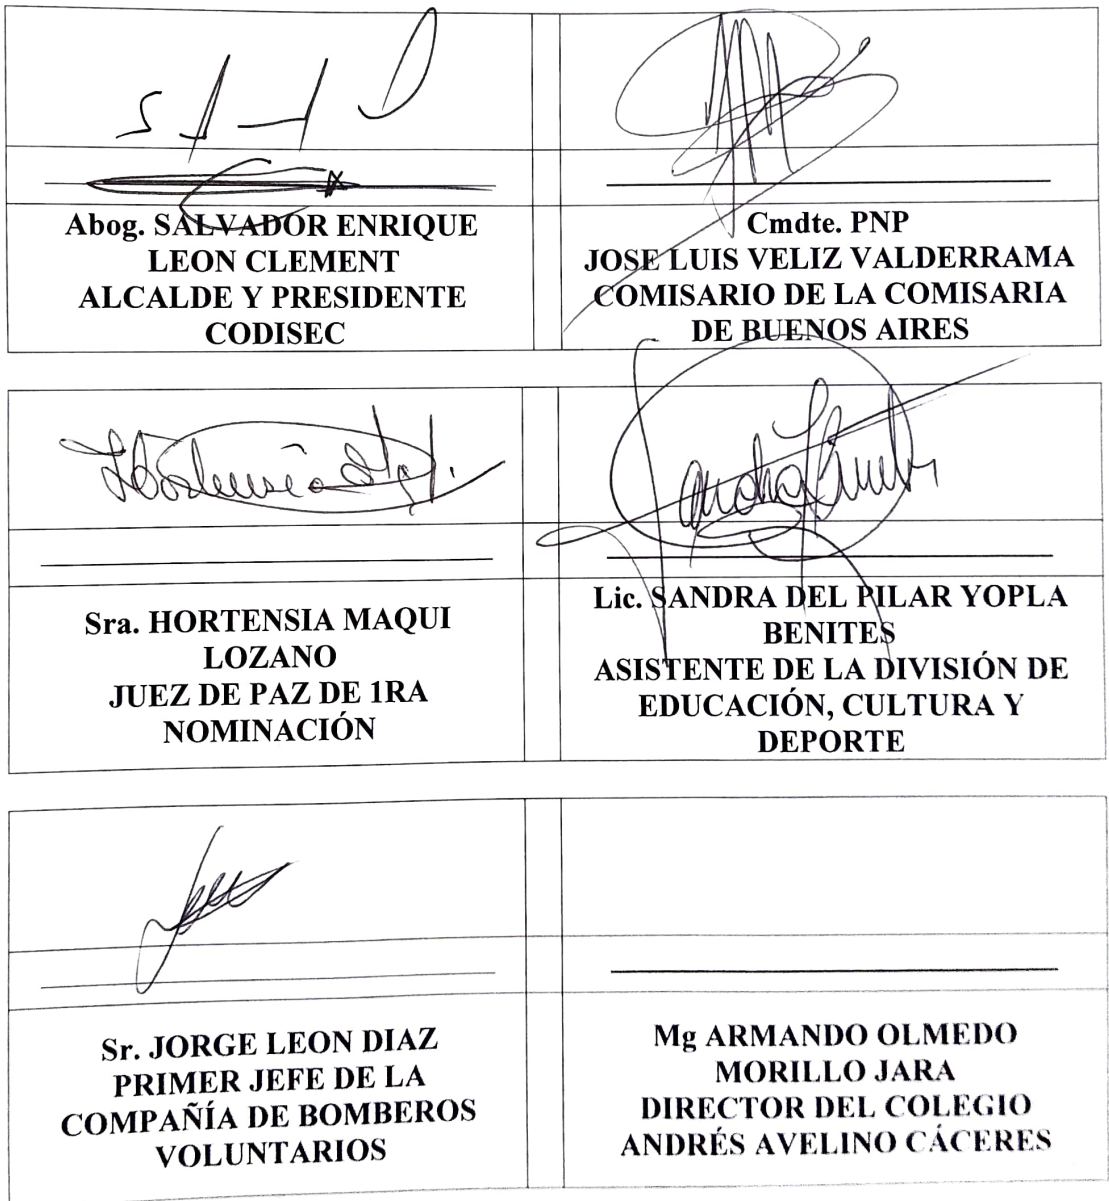 Abog. SALVADOR ENRIQUE
LEON CLEMENT
ALCALDE Y PRESIDENTE
CODISEC
Cmdte. PNP
JOSE LUIS VELIZ VALDERRAMA
COMISARIO DE LA COMISARIA
DE BUENOS AIRES
Sra. HORTENSIA MAQUI
LOZANO
JUEZ DE PAZ DE 1RA
NOMINACIÓN
Lic. SANDRA DEL PILAR YOPLA
BENITES
ASISTENTE DE LA DIVISIÓN DE
EDUCACIÓN, CULTURA Y
DEPORTE
Sr. JORGE LEON DIAZ
PRIMER JEFE DE LA
COMPAÑÍA DE BOMBEROS
VOLUNTARIOS
Mg ARMANDO OLMEDO
MORILLO JARA
DIRECTOR DEL COLEGIO
ANDRÉS AVELINO CÁCERES